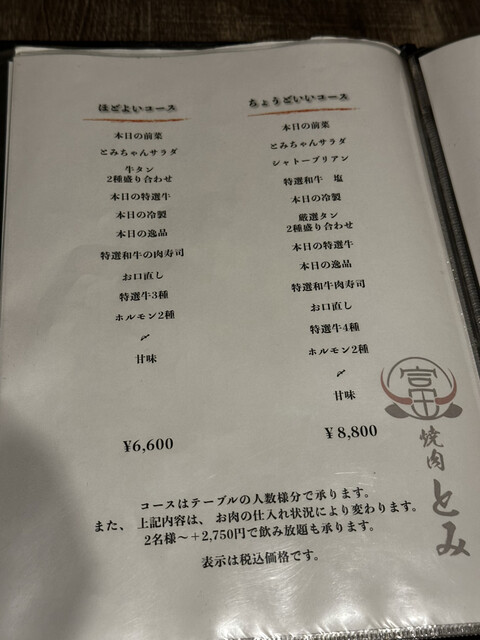 ほどよいコース
本日の前菜
とみちゃんサラダ
牛タン
2種盛り合わせ
本日の特選牛
本日の冷製
本日の逸品
特選和牛の肉寿司
お口直し
特選牛3種
ホルモン2種
〆
甘味
¥6,600
ちょうどいいコース
本日の前菜
とみちゃんサラダ
シャトーブリアン
特選和牛 塩
本日の冷製
厳選タン
2種盛り合わせ
本日の特選牛
本日の逸品
特選和牛肉寿司
お口直し
特選牛4種
ホルモン2種
〆
甘味
¥8,800
コースはテーブルの人数様分で承ります。
また、上記内容は、お肉の仕入れ状況により変わります。
2名様～+2,750円で飲み放題も承ります。
表示は税込価格です。
富
焼肉とみ